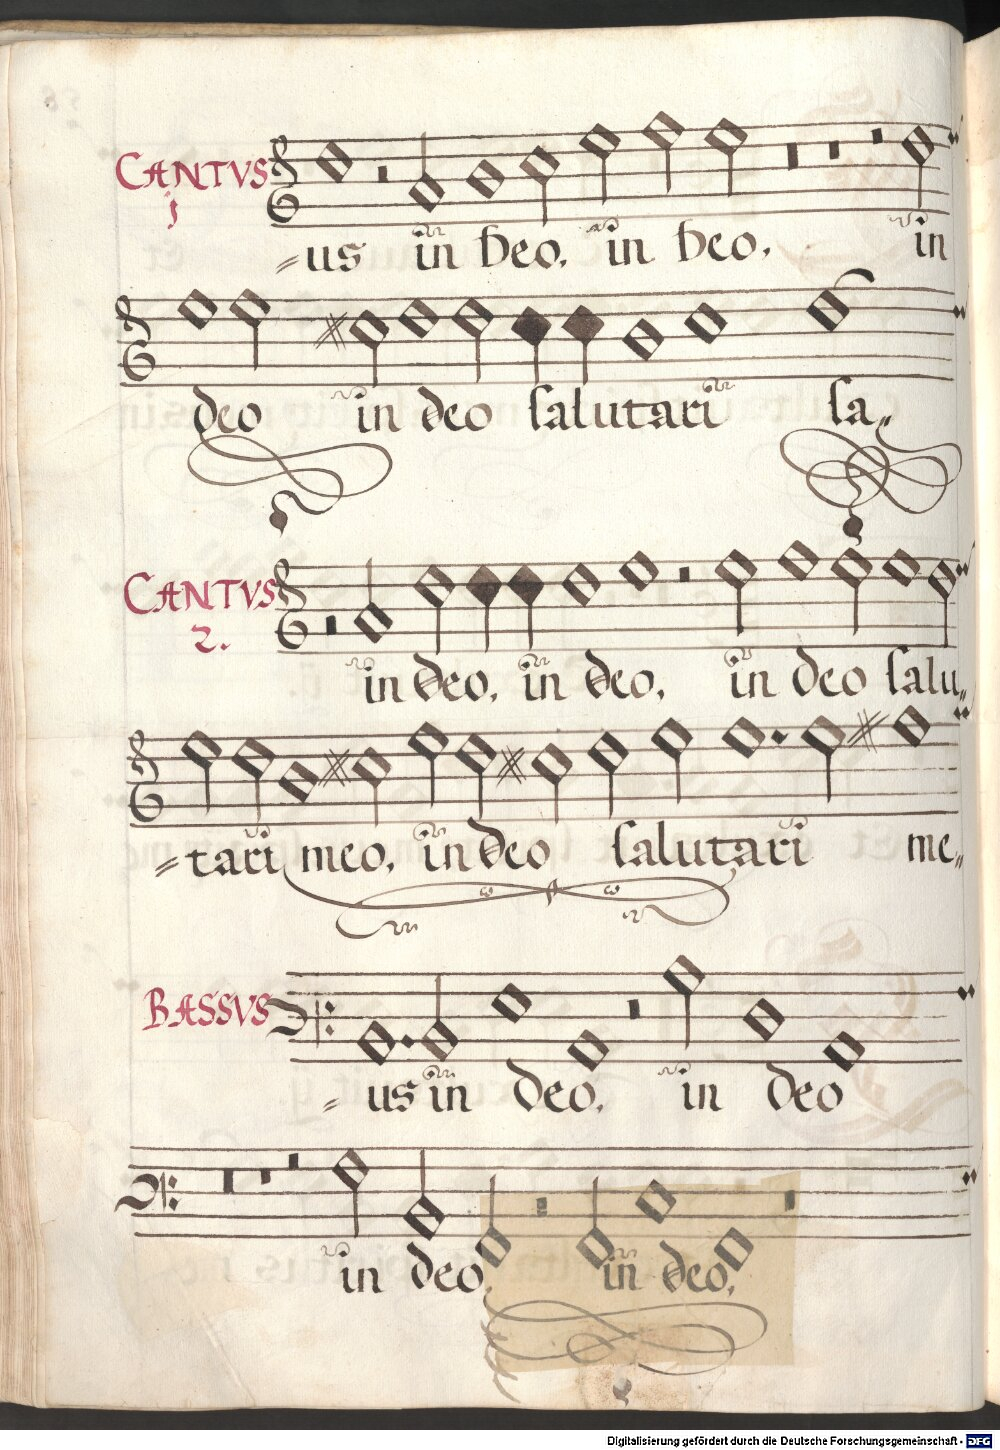 CANTVS
1
=us in deo, in deo, in
deo in deo salutari sa„
CANTVS
2.
in deo, in deo, in deo salu„
=tari meo, in deo salutari me„
BASSVS
=us in deo, in deo
in deo, in deo,
Digitalisierung gefördert durch die Deutsche Forschungsgemeinschaft - DFG